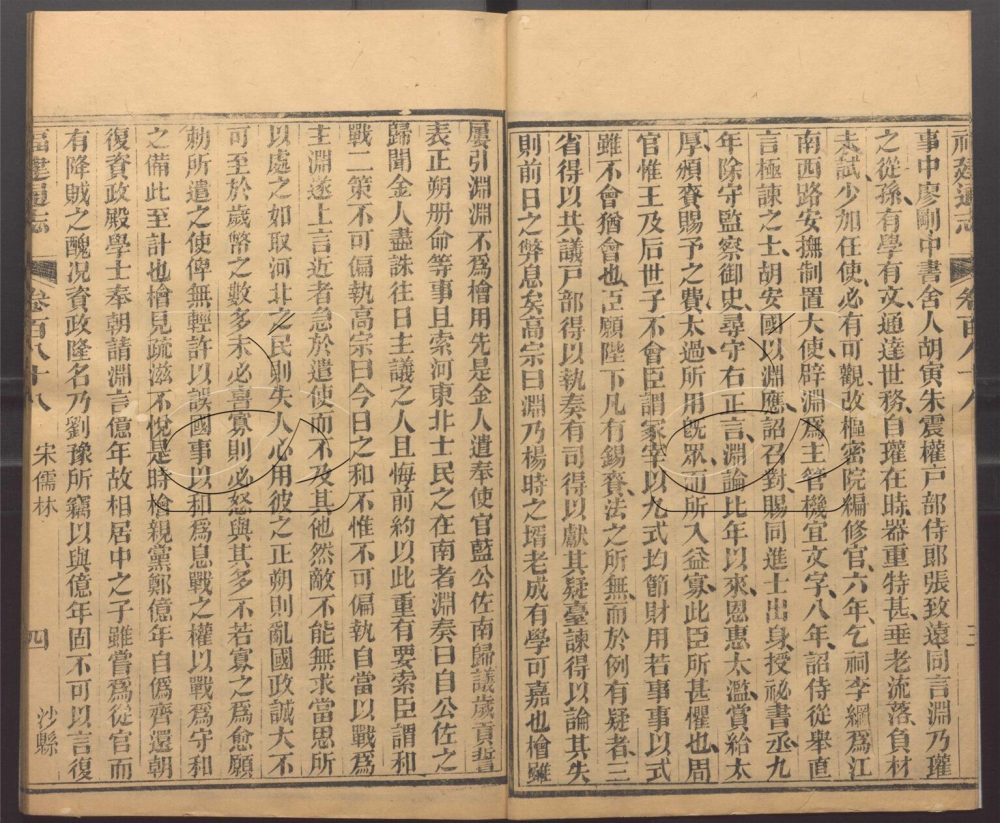 福建通志 卷百八十八 三
事中廖剛中書舍人胡寅朱震權戸部侍郎張致遠同言淵乃瓘
之從孫有學有文通達世務自瓘在時器重特甚垂老流落負材
未試少加任使必有可觀改樞密院編修官六年乞祠李綱爲江
南西路安撫制置大使辟淵爲主管機宜文字八年詔侍從舉直
言極諫之士胡安國以淵應詔召對賜同進士出身授祕書丞九
年除守監察御史尋守右正言淵論比年以來恩惠太濫賞給太
厚頒賚賜予之費太過所用旣眾而所入益寡此臣所甚懼也周
官惟王及后世子不會臣謂冢宰以九式均節財用若事事以式
雖不會猶會也臣願陛下凡有錫賚法之所無而於例有疑者三
省得以共議戸部得以執奏有司得以獻其疑臺諫得以論其失
則前日之弊息矣高宗曰淵乃楊時之壻老成有學可嘉也檜雖
屢引淵淵不爲檜用先是金人遣奉使官藍公佐南歸議歲貢誓
表正朔册命等事且索河東北士民之在南者淵奏曰自公佐之
歸聞金人盡誅往日主議之人且悔前約以此重有要索臣謂和
戰二策不可偏執高宗曰今日之和不惟不可偏執自當以戰爲
主淵遂上言近者急於遣使而不及其他然敵不能無求當思所
以處之如取河北之民則失人心用彼之正朔則亂國政誠大不
可至於歲幣之數多未必喜寡則必怒與其多不若寡之爲愈願
勅所遣之使俾無輕許以誤國事以和爲息戰之權以戰爲守和
之備此至計也檜見疏滋不悅是時檜親黨鄭億年自僞齊還朝
復資政殿學士奉朝請淵言億年故相居中之子雖嘗爲從官而
有降賊之醜况資政隆名乃劉豫所竊以與億年固不可以言復
福建通志 卷百八十八 宋儒林 四 沙縣